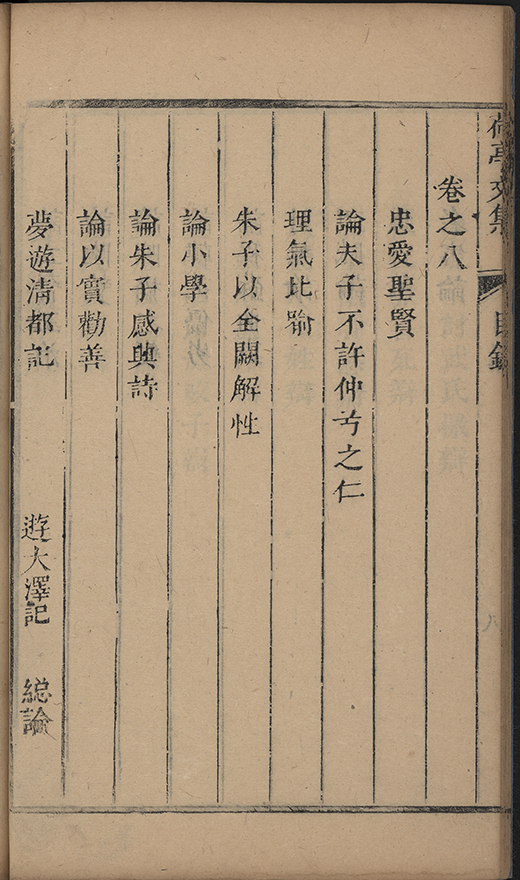 亭文集 目錄
卷之八
忠愛聖賢
論夫子不許仲弓之仁
理氣比喻
朱子以全闕解性
論小學
論朱子感興詩
論以實勸善
夢遊清都記 遊大澤記 總論